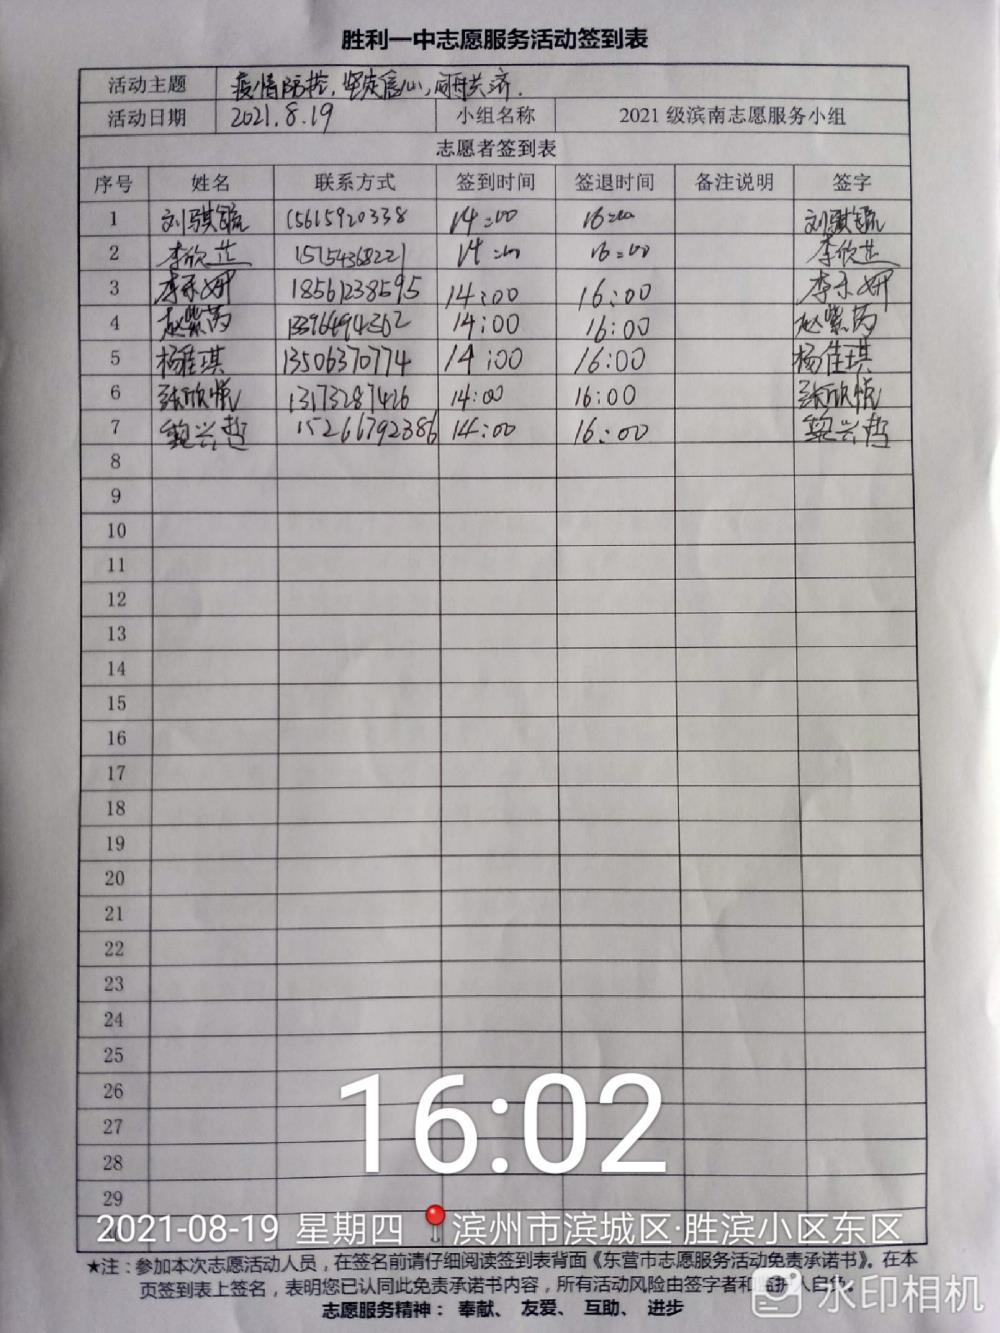 胜利一中志愿服务活动签到表
活动主题 疫情防控,坚定信心,同舟共济.
活动日期 2021.8.19 小组名称 2021级滨南志愿服务小组
志愿者签到表
序号 姓名 联系方式 签到时间 签退时间 备注说明 签字
1 刘骐毓 15615920338 14:00 16:00 刘骐毓
2 李欣芷 15754368221 14:00 16:00 李欣芷
3 李禾妍 18561238595 14:00 16:00 李禾妍
4 赵紫芮 13396494362 14:00 16:00 赵紫芮
5 杨佳琪 13506370774 14:00 16:00 杨佳琪
6 张欣悦 13173287426 14:00 16:00 张欣悦
7 兴哲 15266792386 14:00 16:00 兴哲
8
9
10
11
12
13
14
15
16
17
18
19
20
21
22
23
24
25
26
27
28
29
16:02
2021-08-19 星期四 滨州市滨城区·胜滨小区东区
★注:参加本次志愿活动人员,在签名前请仔细阅读签到表背面《东营市志愿服务活动免责承诺书》。在本
页签到表上签名,表明您已认同此免责承诺书内容,所有活动风险由签字者和监护人自负。
志愿服务精神: 奉献、 友爱、 互助、 进步
水印相机